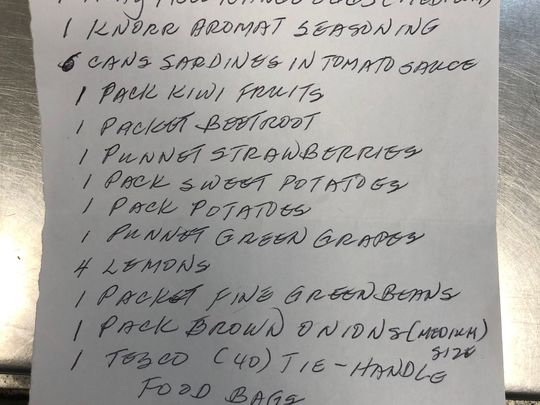 (MEDIUM)
1 KNORR AROMAT SEASONING
6 CANS SARDINES IN TOMATO SAUCE
1 PACK KIWI FRUITS
1 PACKET BEETROOT
1 PUNNET STRAWBERRIES
1 PACK SWEET POTATOES
1 PACK POTATOES
1 PUNNET GREEN GRAPES
4 LEMONS
1 PACKET FINE GREEN BEANS
1 PACK BROWN ONIONS (MEDIUM)
SIZE
1 TESCO (40) TIE-HANDLE
FOOD BAGS